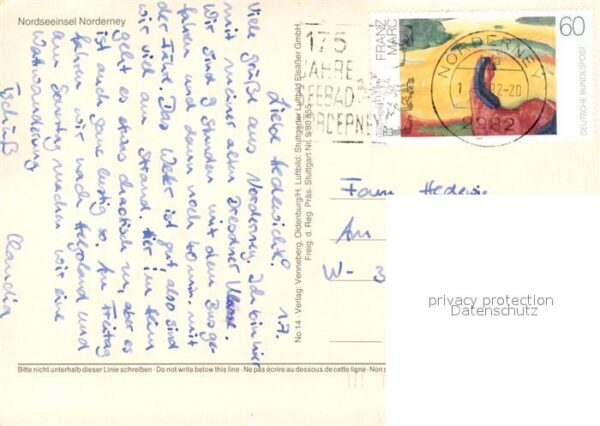 Nordseeinsel Norderney
17.
Liebe
Viele Grüße aus Norderney. Ich bin hier
mit meiner alten Dresdner Klasse.
Wir sind 9 Stunden mit dem Bus ge-
fahren und dann noch 40 min. mit
der Fähre. Das Wetter ist gut, also sind
wir viel am Strand. Hier im Heim
geht es etwas chaotisch zu, aber es
ist auch ganz lustig so. Am Freitag
fahren wir nach Helgoland und
am Sonntag machen wir eine
Wattwanderung
Tschüß
Claudia
No 14 · Verlag: Venneberg, Oldenburg/H. Luftbild: Stuttgarter Luftbild Elsäßer GmbH,
Freig. d. Reg. Präs. Stuttgart Nr. 9/80 855
Bitte nicht unterhalb dieser Linie schreiben · Do not write below this line · Ne pas écrire au dessous de cette ligne · Non
175
JAHRE
SEEBAD
NORDERNEY
FRANZ
MARC
60
DEUTSCHE BUNDESPOST
NORDERNEY
2982
An
W - 3
privacy protection
Datenschutz